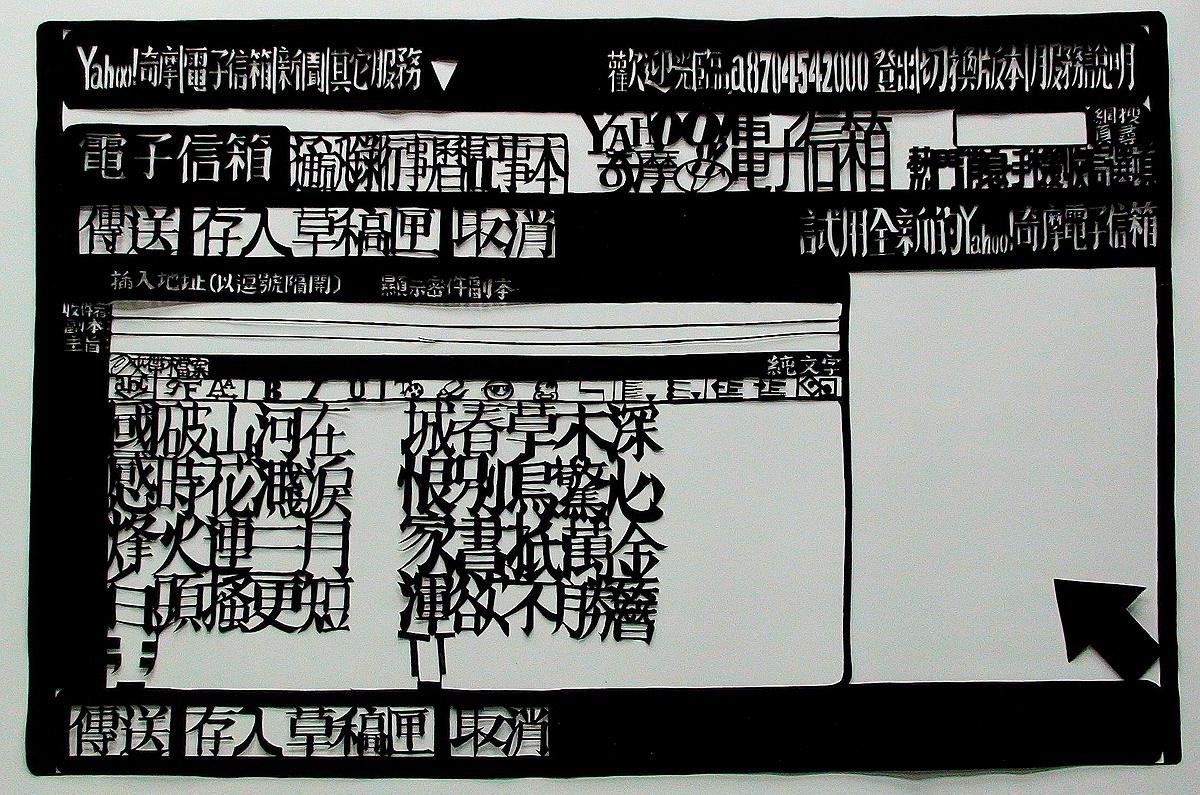 Yahoo!奇摩|電子信箱|新聞|其它服務▼
歡迎光臨,a8704542000 登出|切換版本|服務說明
電子信箱 通訊錄 行事曆 記事本
YAHOO!奇摩 電子信箱
網頁搜尋
熱門 信選項
傳送 存入草稿匣 取消
試用全新的Yahoo!奇摩電子信箱
插入地址(以逗號隔開) 顯示密件副本
收件者
副本
主旨
夾帶檔案 純文字
國破山河在 城春草木深
感時花濺淚 恨別鳥驚心
烽火連三月 家書抵萬金
白頭搔更短 渾欲不勝簪
傳送 存入草稿匣 取消